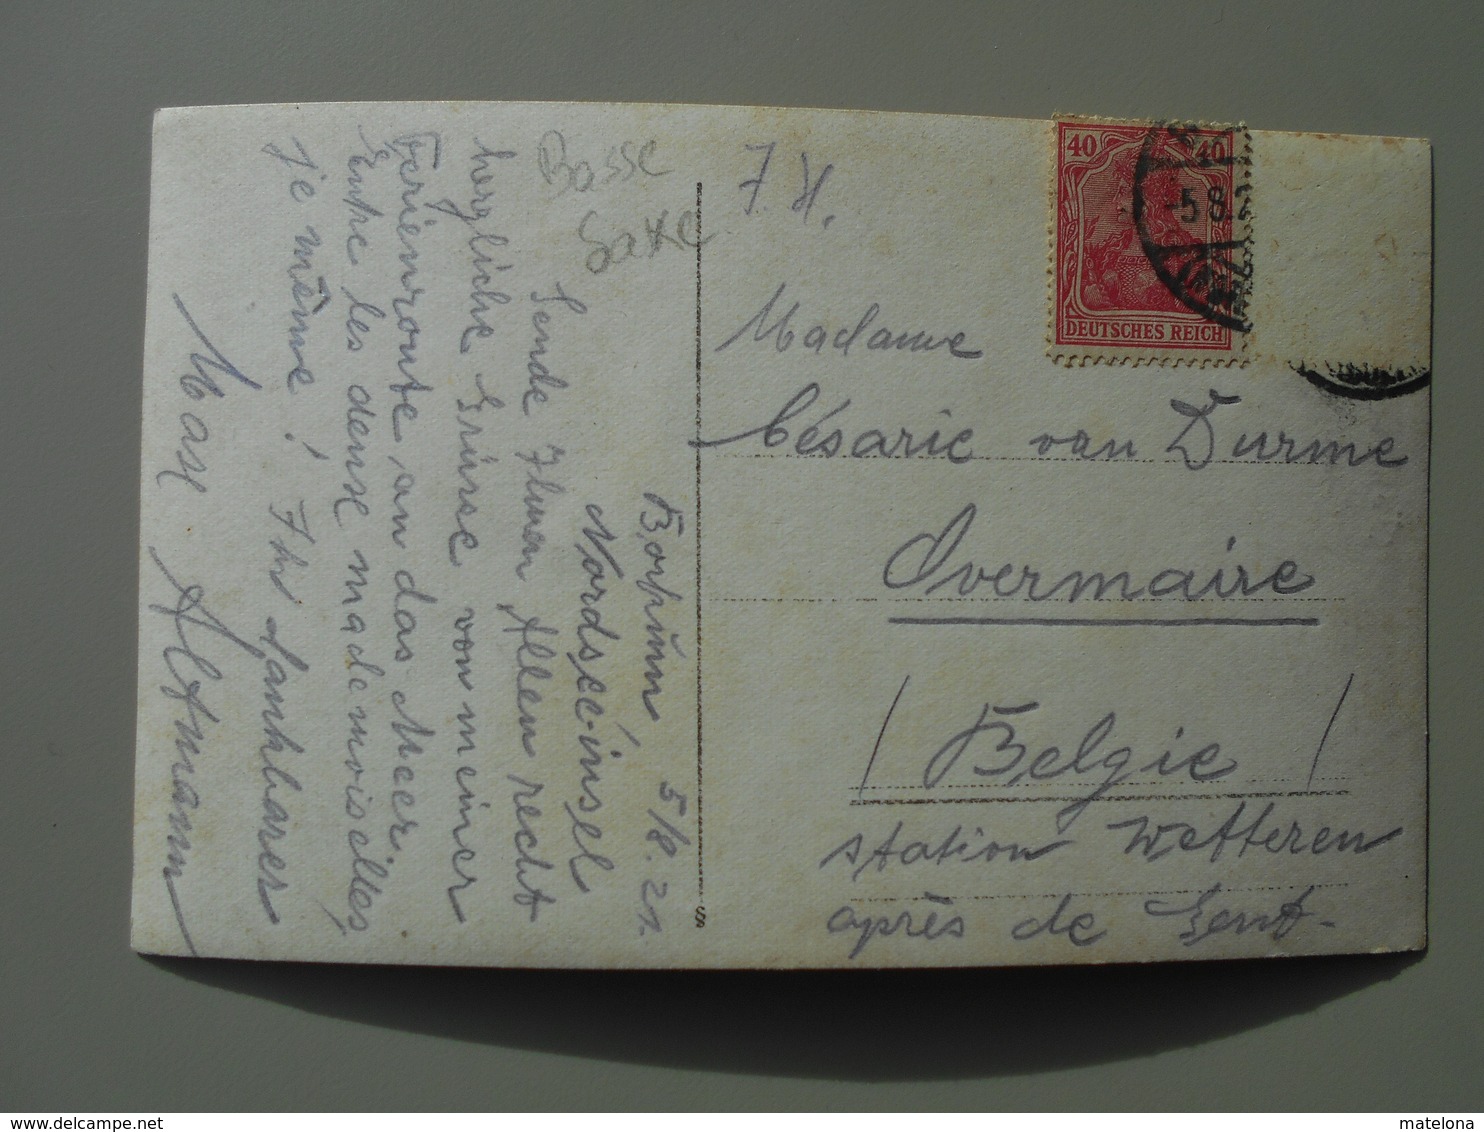 Basse
Saxe
Borkum 5/8. 21.
Nordsee-insel
Sende Ihnen Allen recht
herzliche Grüsse von meiner
Ferienroute an das Meer.
Entre les deux mademoiselles,
je même! Ihr dankbarer
Max Altmann
7. H.
40 40
-5.8.2
DEUTSCHES REICH
Madame
Césarie van Durme
Overmaire
/ Belgie /
station Wetteren
après de Gent-
S
matelona